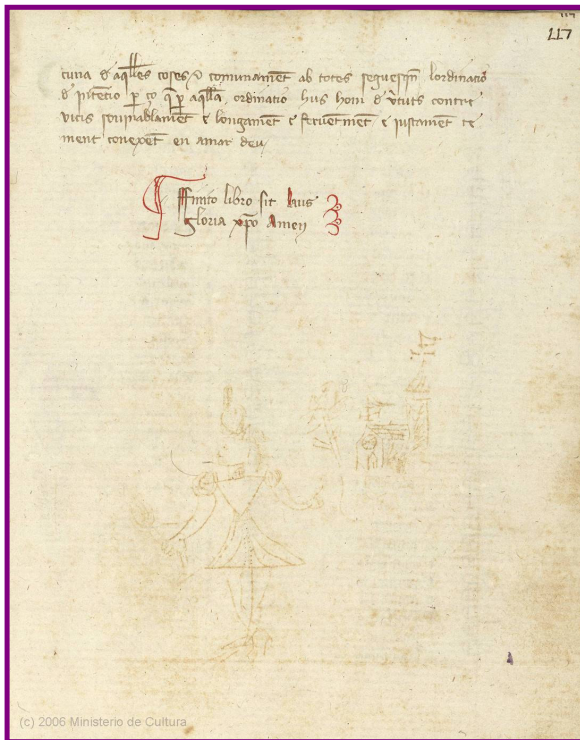 117
117
cuna d aq̃lles coses / o comunamẽt ab totes seguesqẽ lordinatio
d intẽcio p̃ ço q̃ p̃ aq̃lla ordinatio hus hom d v̓tuts contre
vicis sovinadlamẽt e longamẽt e fervẽtmẽt e justamẽt te
ment conexẽt en amar deu
Ffinito libro sit laus
gloria xp̃o Amen
(c) 2006 Ministerio de Cultura